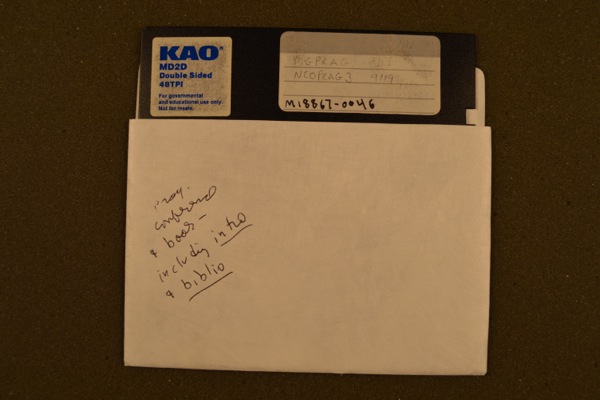 KAO®
MD2D
Double Sided
48TPI
For governmental
and educational use only.
Not for resale.
NCOPRAG3
M18867-0046
conference
including intro
& biblio